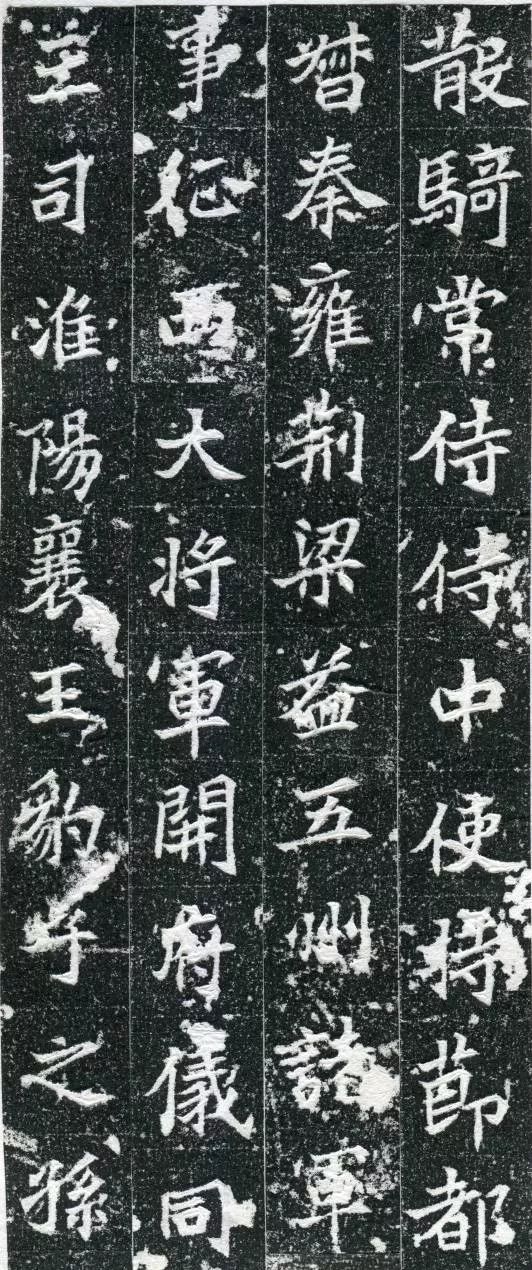 散騎常侍侍中使持節都
督秦雍荆梁益五州諸軍
事征西大将軍開府儀同
三司淮陽襄王豹子之孫